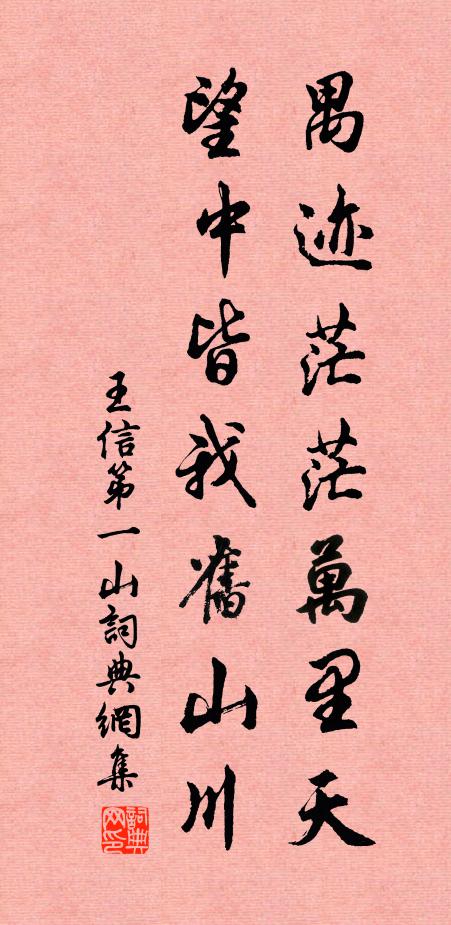 禺迹茫茫萬里天
望中皆我舊山川
王信第一山詞典網集
詞典网印